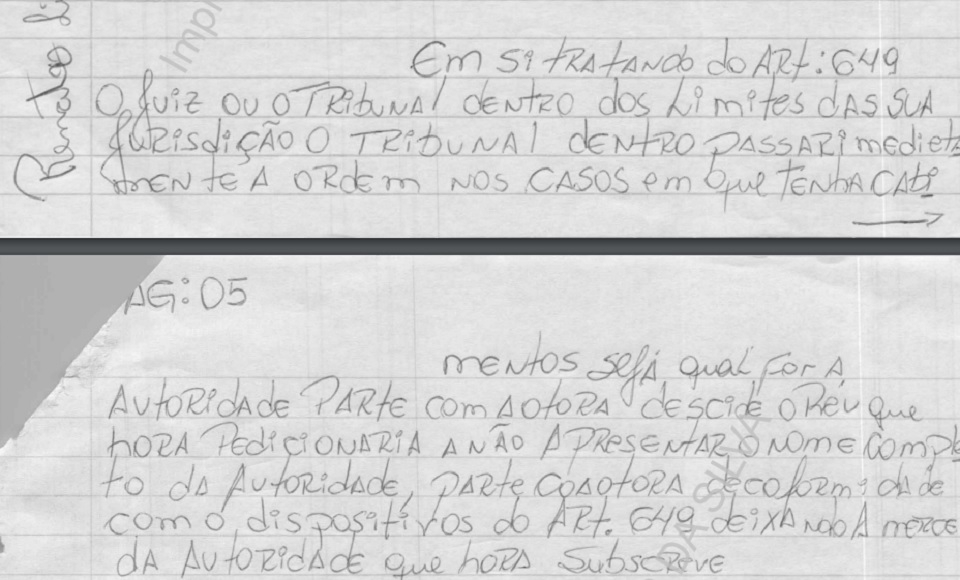 Em si tratando do ART: 649
O juiz ou o Tribunal dentro dos Limites das sua
jurisdição o Tribunal dentro passar imedieta
mente a ordem nos casos em que tenha cabi
AG: 05
mentos sejá qual for a
Autoridade Parte com aotora descide o Réu que
hora Pedicionaria a não Apresentar o nome comple
to da Autoridade, parte coaotora decoformidade
com o dispositivos do ART. 649 deixando A merce
da Autoridade que hora subscreve